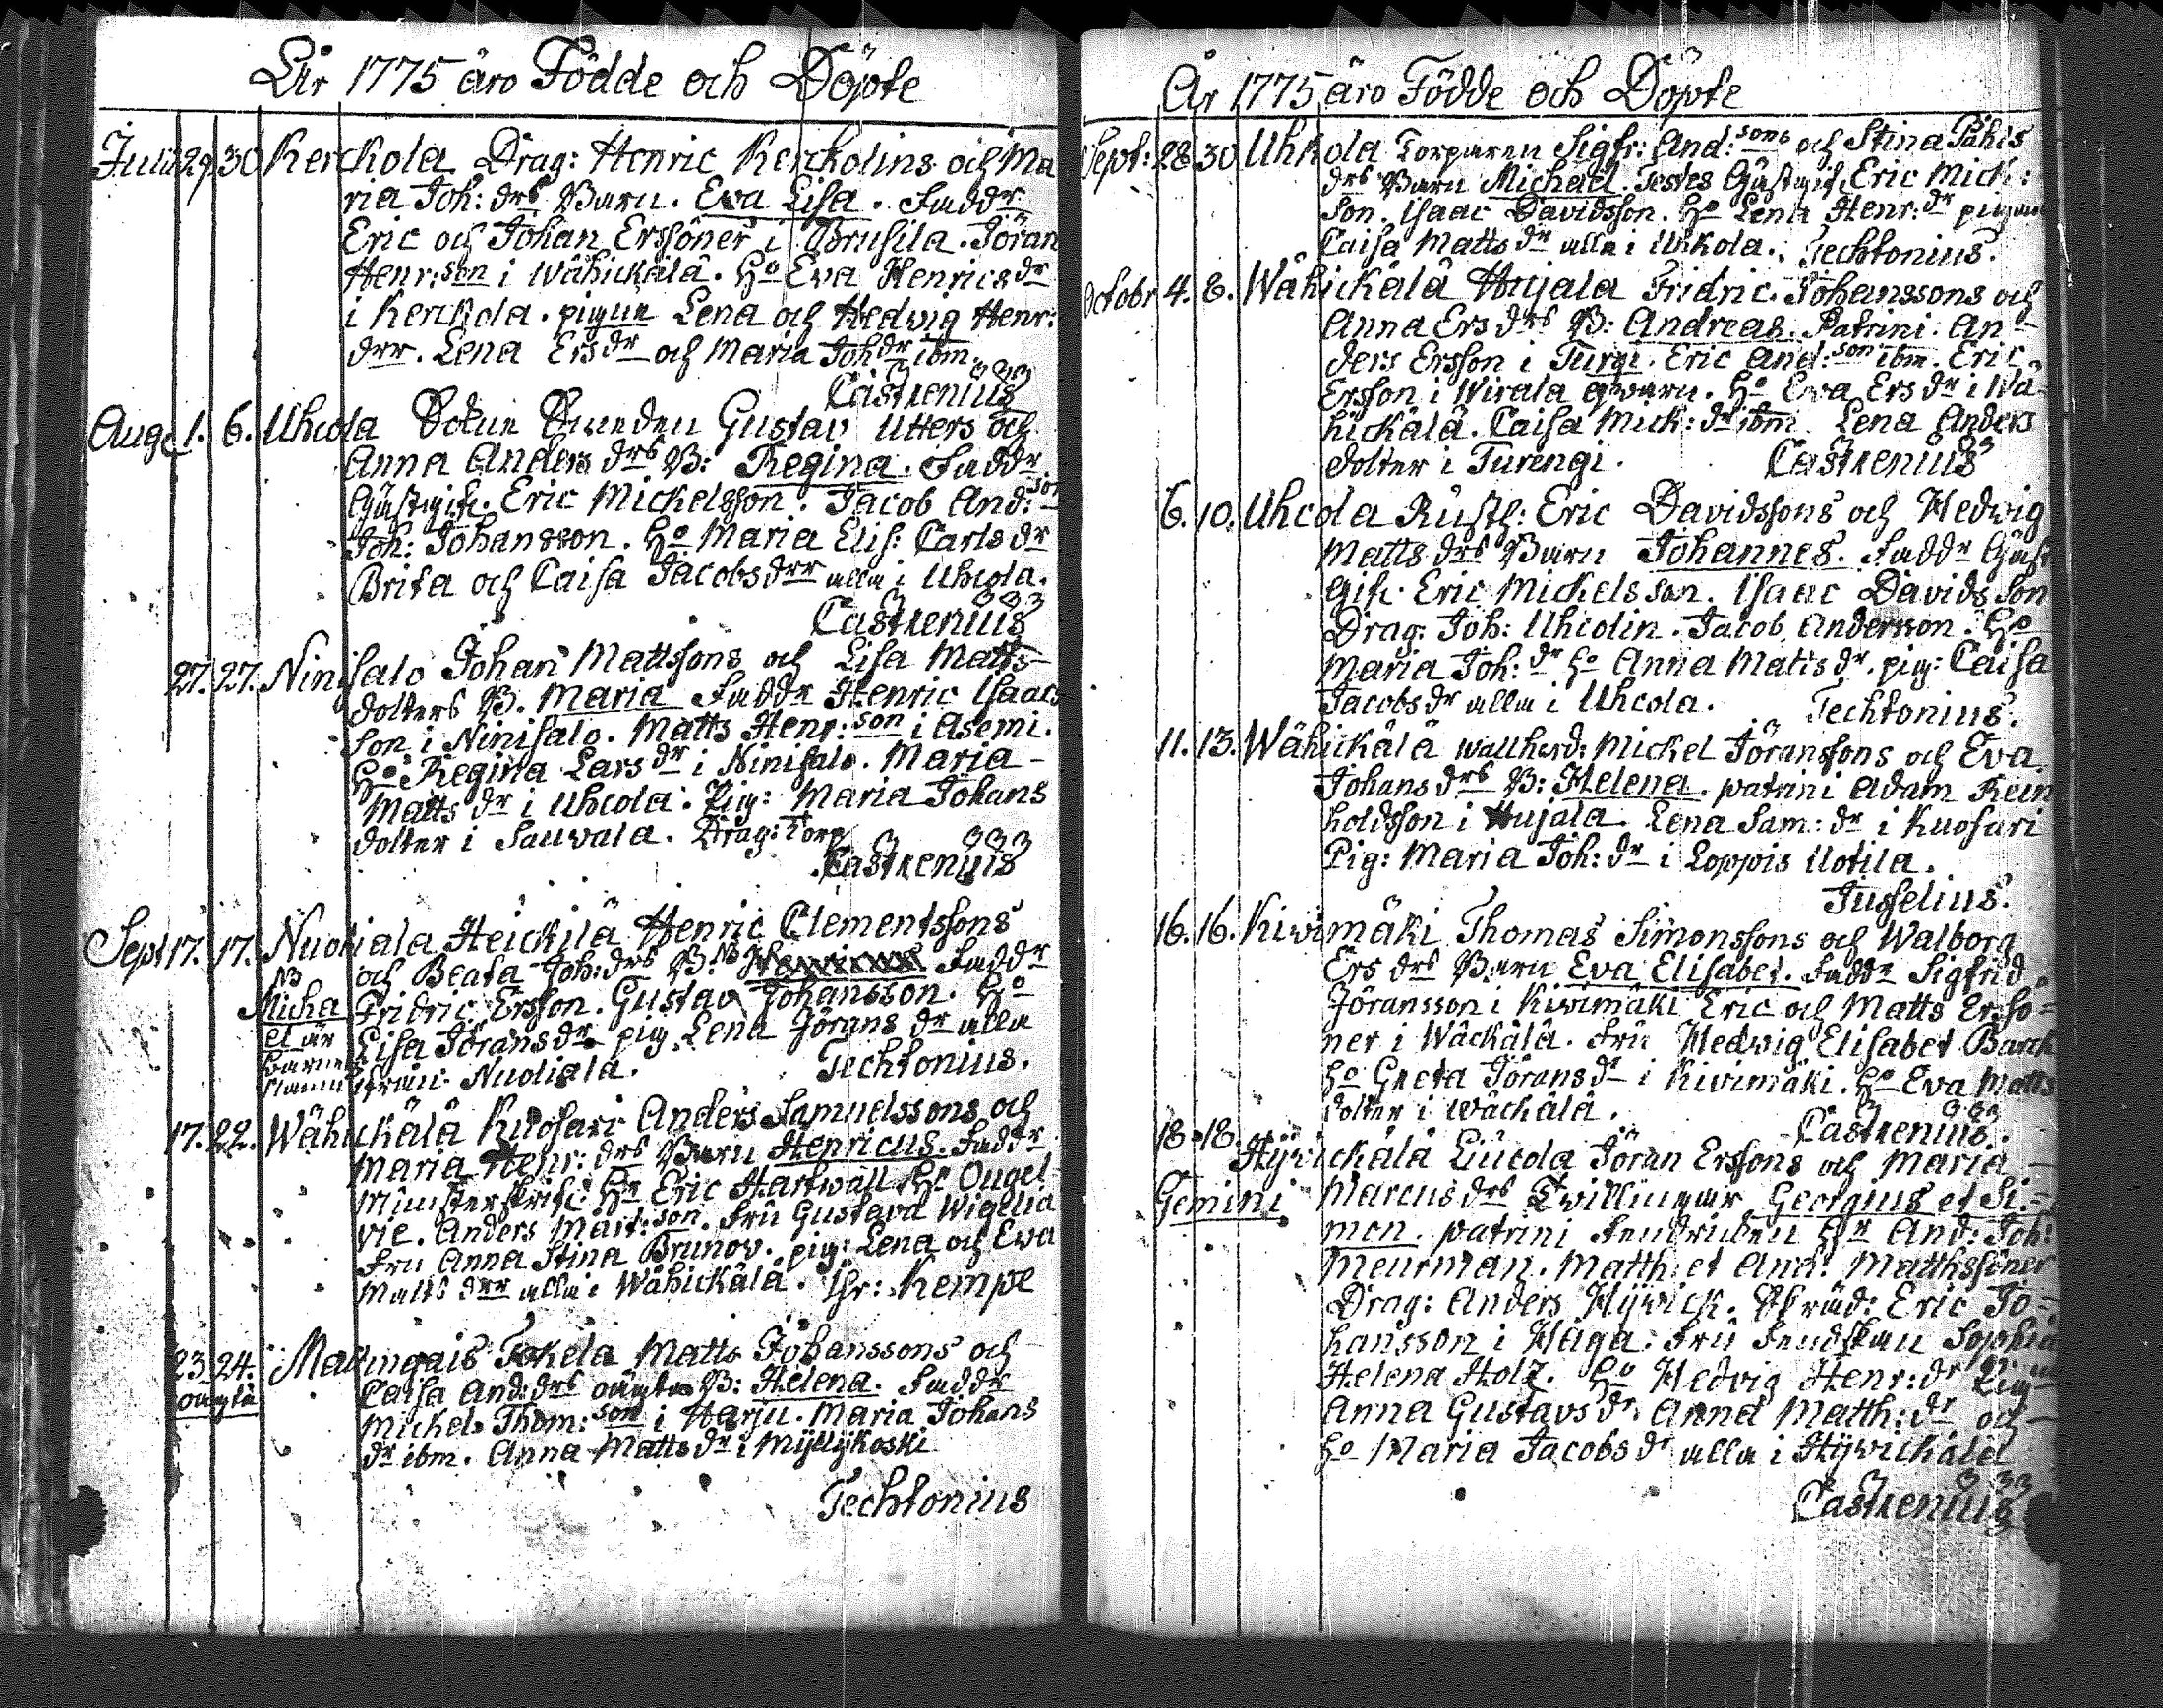 År 1775 äro Födde och Döpte
Julii 29. 30 Kerckola Drag: Henric Kerckolins och Ma
ria Joh: drs Barn. Eva Lisa. Faddr
Eric och Johan Erssöner i Brusila. Jöran
Henr: son i Wähickälä. Ho Eva Henricsdr
i Kerckola. pigan Lena och Hedwig Henr:
drr. Lena Ersdr och Maria Johdr ibm.
Castrenius
Aug: 1. 6. Uhcola Gustav Utters och
Anna Anders drs B: Regina. Faddr
Gästgif. Eric Mickelsson. Jacob And: son
Joh: Johansson. Ho Maria Elis: Carls dr
Brita och Caisa Jacobs drr alla i Uhcola.
Castrenius
27. 27. Ninisalo Johan Mattssons och Lisa Matts
dotters B. Maria Faddr Henric Isaacs
son i Ninisalo. Matts Henr: son i Asemi.
Ho Regina Lars dr i Ninisalo. Maria
Matts dr i Uhcola. Pig: Maria Johans
dotter i Sauvala. Drag: Torp
Castrenius
Sept 17. 17. Nuoliala Heickilä Henric Clementssons
och Beata Joh: drs B: NB Henricus. Faddr
NB
Micha Fridric Ersson. Gustav Johansson. Ho
el är Lisa Jörans dr pig. Lena Jörans dr alla
Barnets
Namn från Nuoliala. Techtonius.
17. 22. Wähickälä Kuosari Anders Samuelssons och
Maria Henr: drs Barn Henricus. Faddr
Mönsterskrif: Hr Eric Hartwall Hr Ongel
vie. Anders Mart: son. Fru Gustava Wigelia
Fru Anna Stina Brunov. pig: Lena och Ewa
Matts drr alla i Wähickälä. Gr: Kempe
23 24. Mallingais Tokela Matts Johanssons och
oängta Caisa And: drs oängta B: Helena. Faddr
Mickel Thom: son i Harju. Maria Johans
dr ibm. Anna Matts dr i Myllykoski
Techtonius
År 1775 äro Födde och Döpte
Sept: 28 30 Uhkola Torparen Sigfr: And: sons och Stina Påhls
drs Barn Michaël. Testes Gästgif. Eric Mick:
son. Isaac Davidsson. Ho Lena Henr: dr pigan
Caisa Matts dr alla i Uhkola. Techtonius.
Octobr 4. 8. Wähickälä Hujala Fridric Johanssons och
Anna Ers drs B: Andreas. Patrini: An
ders Ersson i Turgi. Eric And: son ibm. Eric
Ersson i Wirala qvarn. Ho Eva Ers dr i Wä
hickälä. Caisa Mick: dr ibm. Lena Anders
dotter i Turengi. Castrenius
6. 10. Uhcola Rusth: Eric Davidssons och Hedwig
Matts drs Barn Johannes. Faddr Gäst
gif. Eric Mickelsson. Isaac Davidsson
Drag: Joh: Uhcolin. Jacob Andersson. Ho
Maria Joh: dr Ho Anna Matts dr. pig: Caisa
Jacobs dr alla i Uhcola. Techtonius.
11. 13. Wähickälä wallherd: Mickel Jöranssons och Eva
Johans drs B: Helena. patrini Adam Rein
holdsson i Hujala. Lena Sam: dr i Kuosari
Pig: Maria Joh: dr i Loppis Uotila.
Jusselius.
16. 16. Kiwimäki Thomas Simonssons och Walborg
Ers drs Barn Eva Elisabet. Faddr Sigfrid
Jöransson i Kiwimäki Eric och Matts Ersö=
ner i Wäckälä. Fru Hedwig Elisabet Barck
Ho Greta Jörans dr i Kivimäki. Ho Eva Matts
dotter i Wäckälä. Castrenius.
18. 18. Hywickälä Lucola Jöran Erssons och Maria
Gemini Marcus drs Twillingar Georgius et Si=
mon. patrini Fendricken Hr And: Joh:
Meurman. Matth: et And: Matthssöner
Drag: Anders Hywick. Skräd: Eric Jo=
hansson i Haga. Fru Sophia
Helena Holz. Ho Hedvig Henr: dr Pig
Anna Gustavs dr. Anna Matth: dr och
Ho Maria Jacobs dr alla i Hywickälä
Castrenius